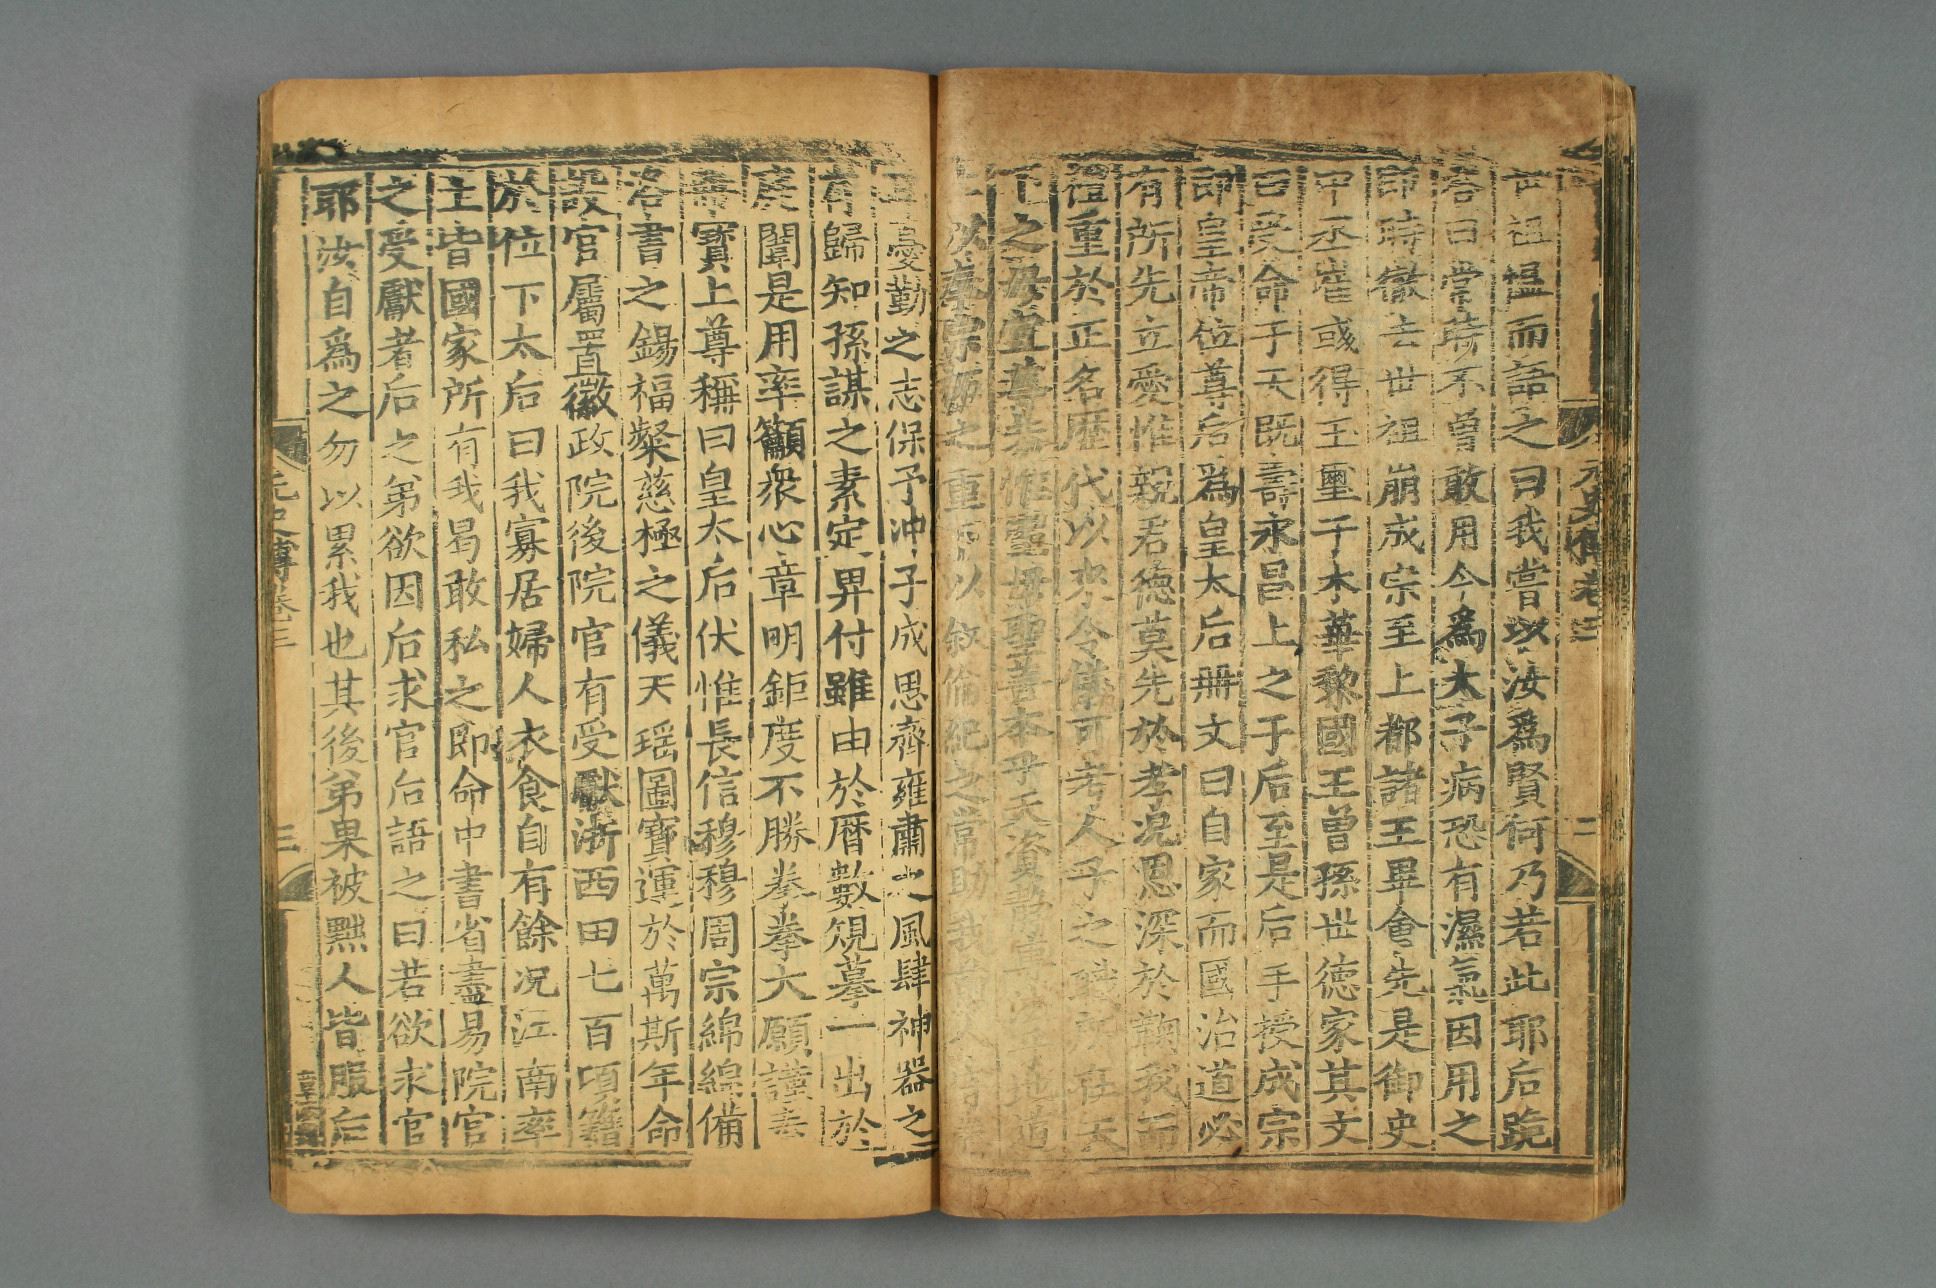 元史傳卷三
二
世祖愠而語之曰我嘗以汝爲賢何乃若此耶后跪
荅曰常時不曾敢用今爲太子病恐有濕氣因用之
即時徹去世祖崩成宗至上都諸王畢會先是御史
中丞崔或得玉璽于木華黎國王曾孫世德家其文
曰受命于天既壽永昌上之于后至是后手授成宗
即皇帝位尊后爲皇太后冊文曰自家而國治道必
有所先立愛惟親君德莫先於孝况恩深於鞠我而
禮重於正名歴代以來令儀可考人子之職 在天
下之母 惟聖母聖善本乎天資 
以奉宗祧之重 以敘倫紀之常助我
憂勤之志保予冲子成思齊雍肅之風肆神器之
有歸知孫謀之素定畀付雖由於曆數規摹一出於
宸闈是用率籲衆心章明鉅度不勝拳拳大願謹奉
寳上尊稱曰皇太后伏惟長信穆穆周宗綿綿備
洛書之錫福粲慈極之儀天瑶圖寳運於萬斯年命
設官屬置徽政院後院官有受獻浙西田七百頃籍
於位下太后曰我寡居婦人衣食自有餘况江南率
土皆國家所有我曷敢私之即命中書省盡易院官
之受獻者后之弟欲因后求官后語之曰若欲求官
耶汝自爲之勿以累我也其後弟果被黜人皆服后
元史傳卷三
三